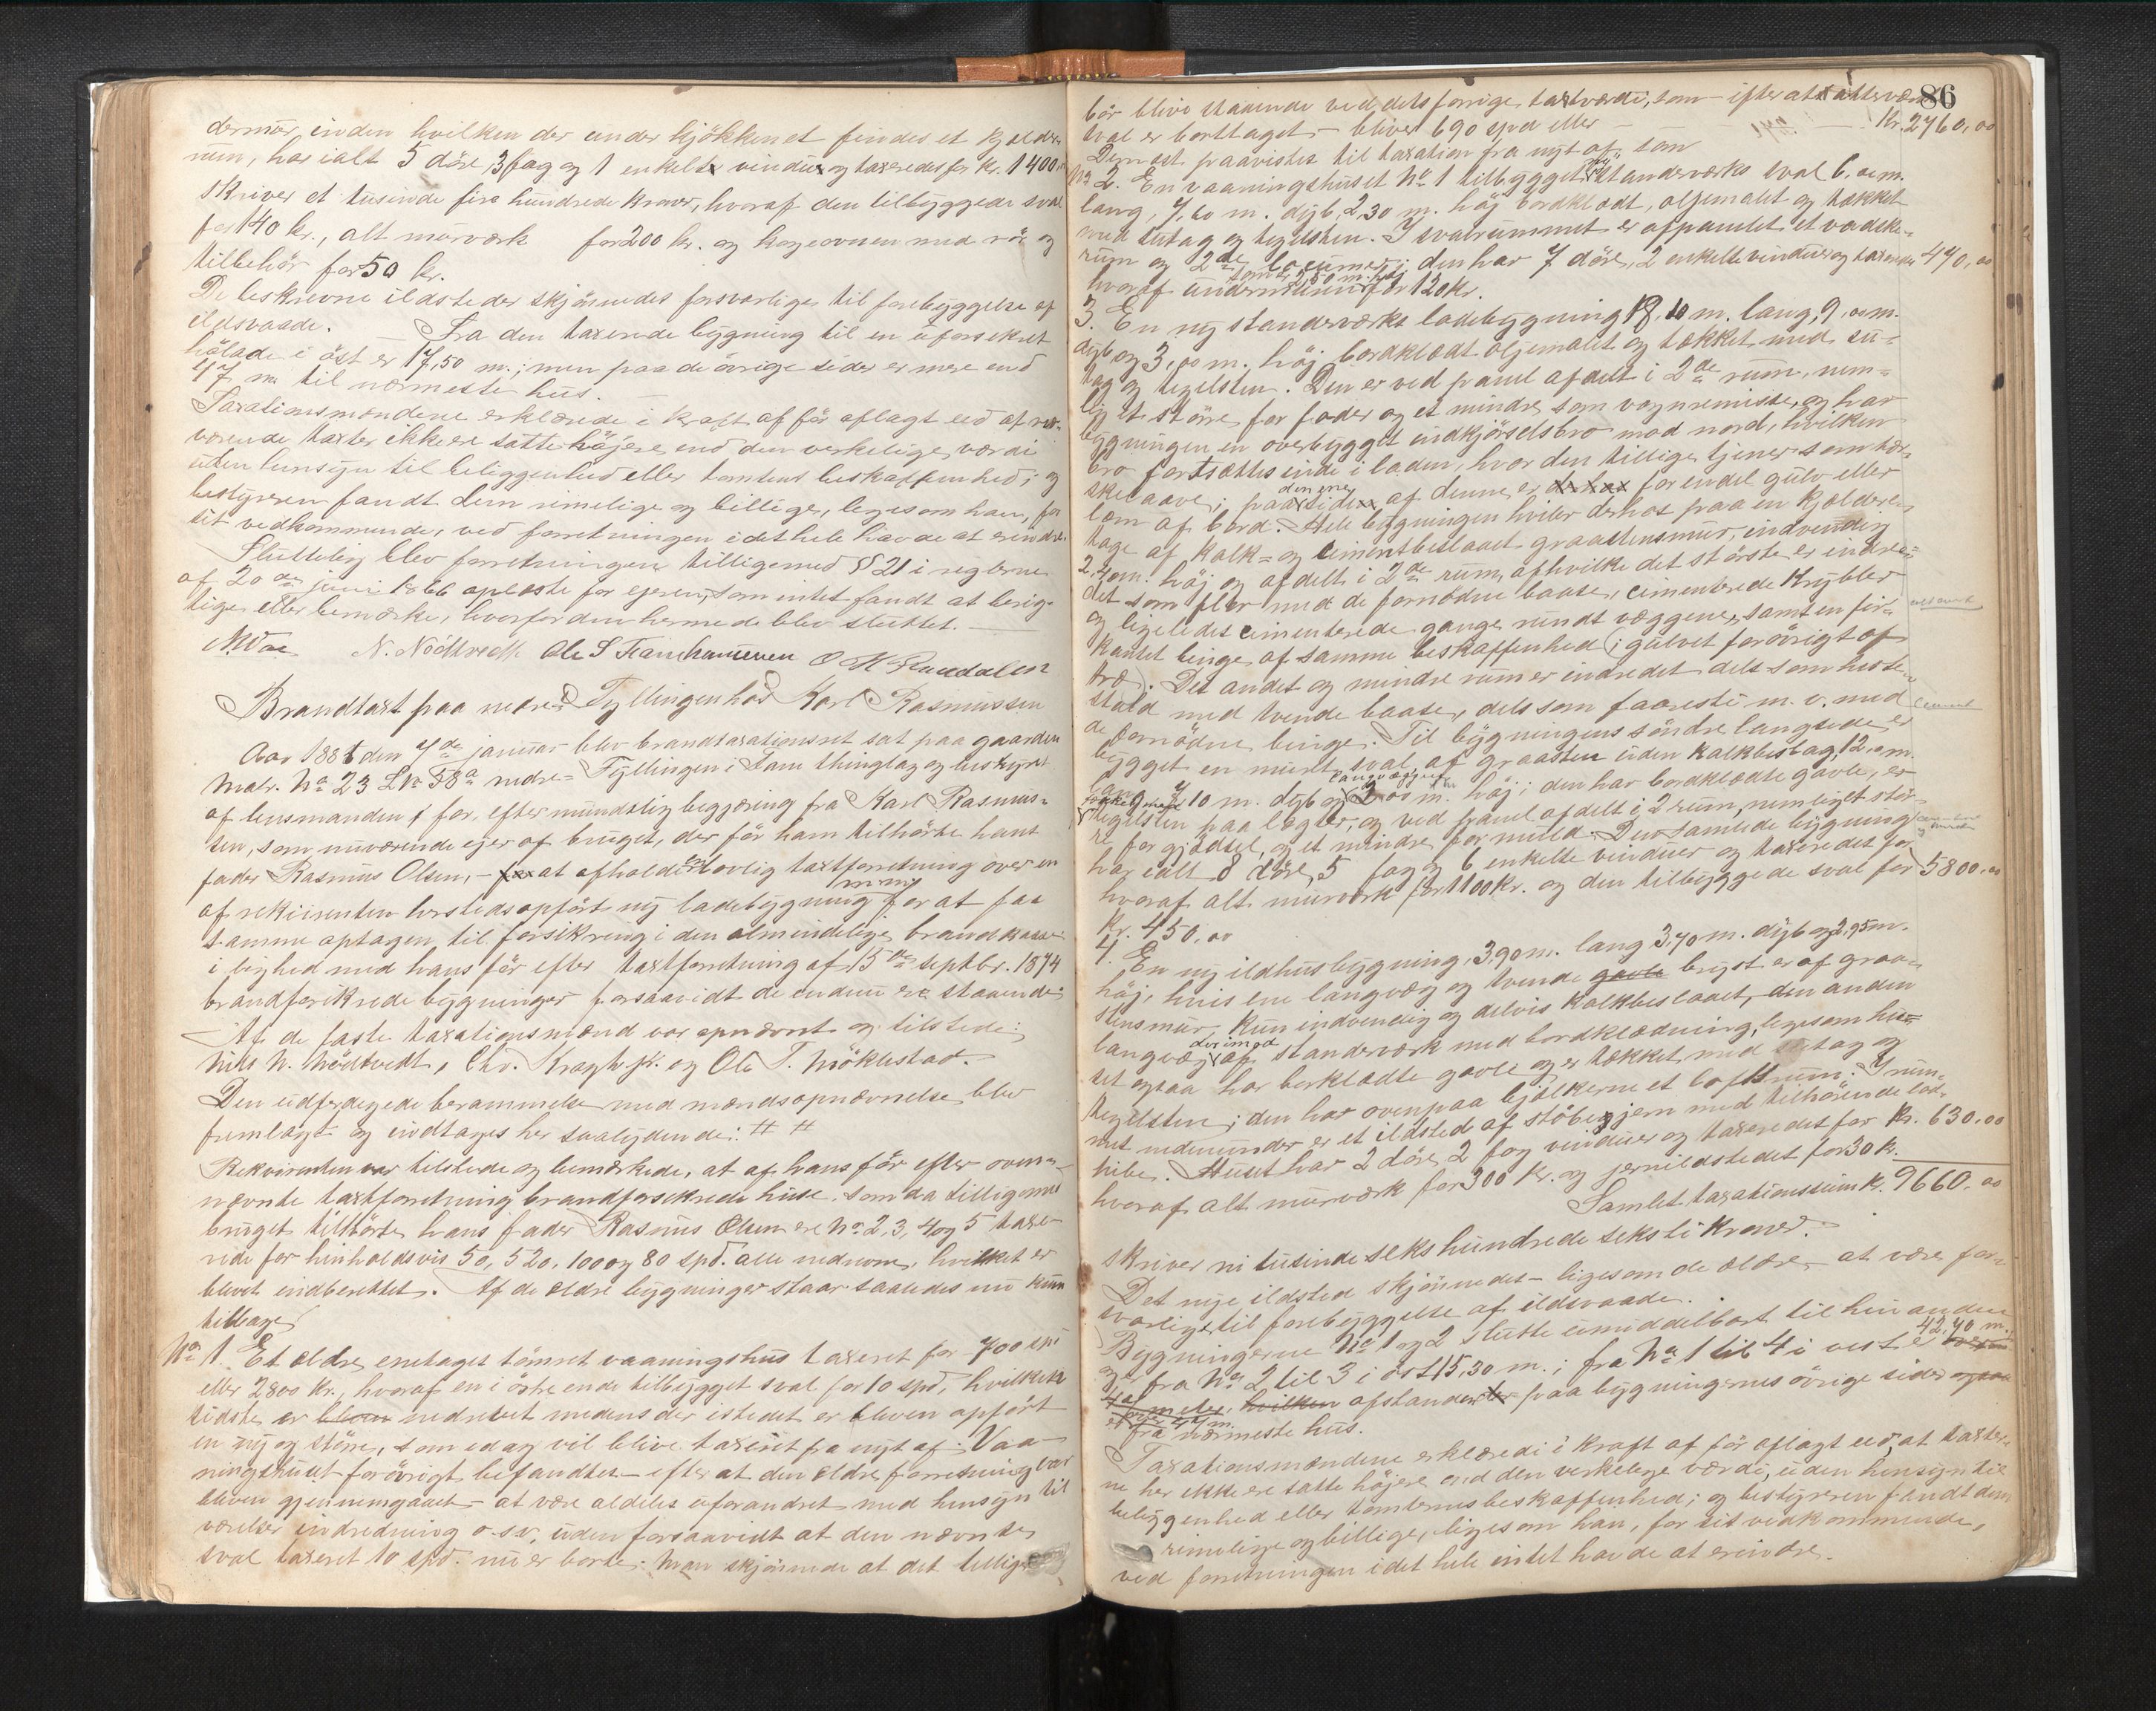 dermur, inden hvilken der under kjökkenet findes et kjelder-
rum, har ialt 5 döre, 3 fag og 1 enkelt vindu og taxeredes for kr. 1400
skriver et tusinde fire hundrede kroner, hvoraf den tilbyggede sval
for 140 kr., alt murværk for 200 kr. og kogeovnen med rör og
tilbehör for 50 kr.
De beskrevne ildsteder skjönnedes forsvarlige til forebyggelse af
ildsvaade. Fra den taxerede bygning til en uforsikret
hölade i öst er 17,50 m.; men paa de övrige sider er mere end
47 m. til nærmeste hus.
Taxationsmændene erklærede i kraft af för aflagt eed at nær-
værende taxter ikke ere satte höjere end den verkelige værdi
uden hensyn til beliggenhed eller tomtens beskaffenhed; og
bestyreren fandt dem rimelige og billige, ligesom han, for
sit vedkommende, ved forretningen i det hele havde at erindre.
Slutteligen blev forretningen tilligemed § 21 i reglerne
af 20de juni 1866 oplæste for ejeren, som intet fandt at berig-
tige eller bemærke, hvorfor den hermed blev sluttet.
N. Nödtvedt Ole S
Brandtaxt paa nedre Tyllingen hos Karl Rasmussen
Aar 1881 den 7de januar blev brandtaxationsret sat paa gaarden
Matr. No 23 LNo 38a nedre Tyllingen i Fane thinglag og bestyret
af lensmanden for, efter mundtlig begjæring fra Karl Rasmus-
sen, som nuværende ejer af bruget, der för ham tilhörte hans
fader Rasmus Olsen, – at afholde en lovlig taxtforretning over en
af rekvirenten herstedsopfört ny ladebygning m.m. for at faa
samme optagen til forsikring i den almindelige brandkasse
i lighed med hans för efter taxtforretning af 15de septbr. 1874
brandforsikrede bygninger forsaavidt de endnu ere staaende.
Af de faste taxationsmænd var opnævnt og tilstede:
Nils N. Nödtvedt, Chr. Kragh jr. og Ole T. Möklestad.
Den udferdigede berammelse med mændsopnævnelse blev
fremlagt og indtages her saalydende: # #
Rekvirenten var tilstede og bemærkede, at af hans för efter oven-
nævnte taxtforretning brandforsikrede huse, som da tilligemed
bruget tilhörte hans fader Rasmus Olsen ere No 2, 3, 4 og 5 taxe-
rede for henholdsvis 50, 520, 100 og 80 spd. alle nedrevne, hvilket er
blevet indberettet. Af de ældre bygninger staar saaledes nu kun
tilbage
No 1. Et ældre enetages tömret vaaningshus taxeret for 700 spd
eller 2800 kr., hvoraf en i östre ende tilbygget sval for 10 spd, hvilken
sidste er nedrevet medens der istedet er bleven opfört
en ny og större, som idag vil blive taxeret fra nyt af. Vaa-
ningshuset forövrigt befandtes – efter at den ældre forretning var
bleven gjennemgaaet – at være aldeles uforandret med hensyn til
værelser indredning o.s.v. uden forsaavidt at den nævnte
sval taxeret 10 spd. nu er borte. Man skjönnede at det tillige
86
bör blive staaende ved dets forrige taxtværdi, som – efter at
sval er borttaget – bliver 690 spd eller – Kr. 2760,00
Dernæst paavistes til taxation fra nyt af som
No 2. En vaaningshuset No 1 tilbygget ny standerværks sval 6,00 m.
lang, 7,60 m. dyb, 2,30 m. höj bordklædt, oljemalet og tækket
med sutag og teglsten. I svalrummet er afpanelet et vadske-
rum og 2de locumer; den har 7 döre, 2 enkelte vinduer og taxeredes 470,00
hvoraf undermuren for 120 kr.
3. En ny standerværks ladebygning 18,10 m. lang, 9,00 m.
dyb og 3,00 m. höj bordklædt oljemalet og tækket med su-
tag og teglsten. Den er ved panel afdelt i 2de rum, nem-
lig et större for foder og et mindre som vognremisse, og har
bygningen en overbygget indkjörselsbro mod nord, hvilken
bro fortsættes inde i laden, hvor den tillige tjener som tær-
skelaave; paa den ene side af denne er forendel gulv eller
lem af bord. Hele bygningen hviler derhos paa en kjelder-
tage af kalk- og cimentbeslaaet graastensmur, indvendig
2,40 m. höj og afdelt i 2de rum, af hvilke det störste er indre-
det som flor med de fornödne baase, cimenterede krybber
og ligeledes cimenterede gange rundt væggene, samt en fir-
kantet binge af samme beskaffenhed (i gulvet forövrigt af
træ). Det andet og mindre rum er indredet dels som heste-
stald med tvende baase, dels som faaresti m. v. med
de fornödne binger. Til bygningens söndre langside er
bygget en muret sval af graasten uden kalkbeslag, 12,00 m.
lang, 7,10 m. dyb og langvæggen 2,00 m. höj; den har bordklædte gavle, er
tækket med teglsten paa lægter, og ved panel afdelt i 2 rum, nemlig et stör-
re for gjödsel, og et mindre for muld. Den samlede bygning
har ialt 8 döre, 5 fag og 6 enkelte vinduer og taxeredes for
hvoraf alt murværk for 1100 kr. og den tilbyggede sval for 5800,00
kr. 450,00
4. En ny ildhusbygning, 3,90 m. lang 3,70 m. dyb og 2,95 m.
höj, hvis ene langvæg og tvende gavle bryst er af graa-
stensmur, kun indvendig og delvis kalkbeslaaet, den anden
langvæg derimod af standerværk med bordklædning, ligesom hu-
set ogsaa har borklædte gavle og er tækket med sutag og
teglsten; den har ovenpaa bjelkerne et loftsrum. I rum-
met nedenunder er et ildsted af stöbejern med tilhörende
pibe. Huset har 2 döre, 2 fag vinduer og taxeredes for kr. 630,00
hvoraf alt murværk for 300 kr. og jernildstedet for 30 k.
Samlet taxationssum k. 9660,00
skriver ni tusinde seks hundrede seksti kroner.
Det nye ildsted skjönnedes – ligesom de ældre – at være for-
svarlige til forebyggelse af ildsvaade.
Bygningerne No 1 og 2 slutte umiddelbart til hinanden
og er fra No 2 til 3 i öst 15,30 m.; fra No 1 til 4 i vest er 42,70 m.
meter, hvilken afstanden paa bygningernes övrige sider
er over 47 m. fra nærmeste hus.
Taxationsmændene erklærede i kraft af för aflagt eed, at taxter-
ne her ikke ere satte höjere end den verkelige værdi, uden hensyn til
beliggenhed eller tomternes beskaffenhed; og bestyreren fandt dem
rimelige og billige, ligesom han, for sit vedkommende,
ved forretningen i det hele intet havde at erindre.